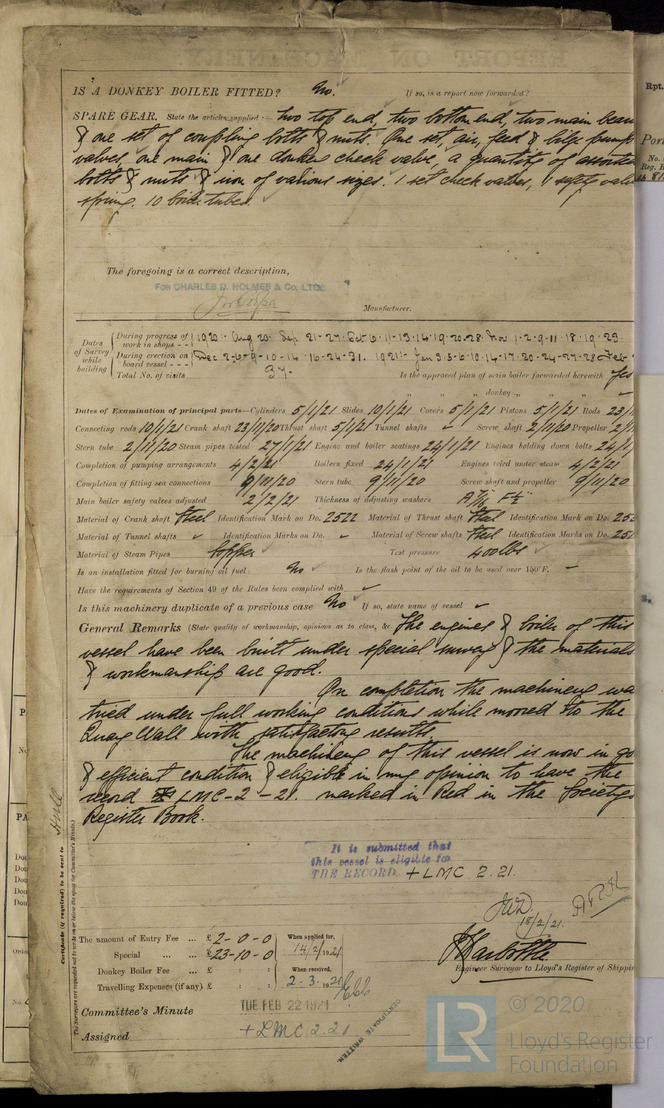 IS A DONKEY BOILER FITTED? No. If so, is a report now forwarded?
SPARE GEAR. State the articles supplied:— two top end, two bottom end, two main bear
& one set of coupling bolts & nuts. One set, air, feed & bilge pump
valves, one main & one donkey check valve, a quantity of assorted
bolts & nuts & iron of various sizes. 1 set check valves, 1 safety valve
spring. 10 boiler tubes.
The foregoing is a correct description,
FOR CHARLES D. HOLMES & Co, LTD.
Manufacturer.
Dates of Survey while building
During progress of work in shops - - 1920. Aug 20. Sep. 21-27. Oct 6-11-13-14-19-20-28. Nov 1-2-9-11-18-19-23
During erection on board vessel - - - Dec 2-6-9-10-14-16-24-31. 1921. Jan 3-5-6-10-14-17-20-24-27-28 Feb-
Total No. of visits 37. Is the approved plan of main boiler forwarded herewith Yes
" " " donkey " " "
Dates of Examination of principal parts—Cylinders 5/1/21 Slides 10/1/21 Covers 5/1/21 Pistons 5/1/21 Rods 23/1
Connecting rods 10/1/21 Crank shaft 23/11/20 Thrust shaft 5/1/21 Tunnel shafts Screw shaft 2/11/20 Propeller 2/1
Stern tube 2/11/20 Steam pipes tested 27/1/21 Engine and boiler seatings 24/1/21 Engines holding down bolts 24/1
Completion of pumping arrangements 4/2/21 Boilers fixed 24/1/21 Engines tried under steam 4/2/21
Completion of fitting sea connections 9/11/20 Stern tube 9/11/20 Screw shaft and propeller 9/11/20
Main boiler safety valves adjusted 2/2/21 Thickness of adjusting washers
Material of Crank shaft Steel Identification Mark on Do. 2522 Material of Thrust shaft Steel Identification Mark on Do. 252
Material of Tunnel shafts Identification Marks on Do. Material of Screw shafts Steel Identification Marks on Do. 252
Material of Steam Pipes Copper Test pressure 400 lbs
Is an installation fitted for burning oil fuel No Is the flash point of the oil to be used over 150°F. –
Have the requirements of Section 49 of the Rules been complied with
Is this machinery duplicate of a previous case No If so, state name of vessel
General Remarks (State quality of workmanship, opinions as to class, &c. The engines & boiler of this
vessel have been built under special survey & the materials
& workmanship are good.
On completion the machinery wa
tried under full working conditions while moored to the
Quay Wall with satisfactory results.
The machinery of this vessel is now in go
& efficient condition & eligible in my opinion to have the
record + LMC-2-21. marked in Red in the Societys
Register Book.
It is submitted that
this vessel is eligible for
THE RECORD. + LMC 2.21.
18/2/21.
Engineer Surveyor to Lloyd's Register of Shippin
The amount of Entry Fee ... £ 2-0-0 When applied for,
Special ... ... £ 23-10-0 14/2/1921
Donkey Boiler Fee ... £ : : When received,
Travelling Expenses (if any) £ : : 2-3-1921
Committee's Minute TUE FEB 22 1921
Assigned + LMC 2.21
CERTIFICATE WRITTEN
Hull
Certificate (if required) to be sent to
The Surveyors are requested not to write on or below the space for Committee's Minute.
Rpt.
Por
No.
Reg. B
© 2020
LR Lloyd's Register
Foundation